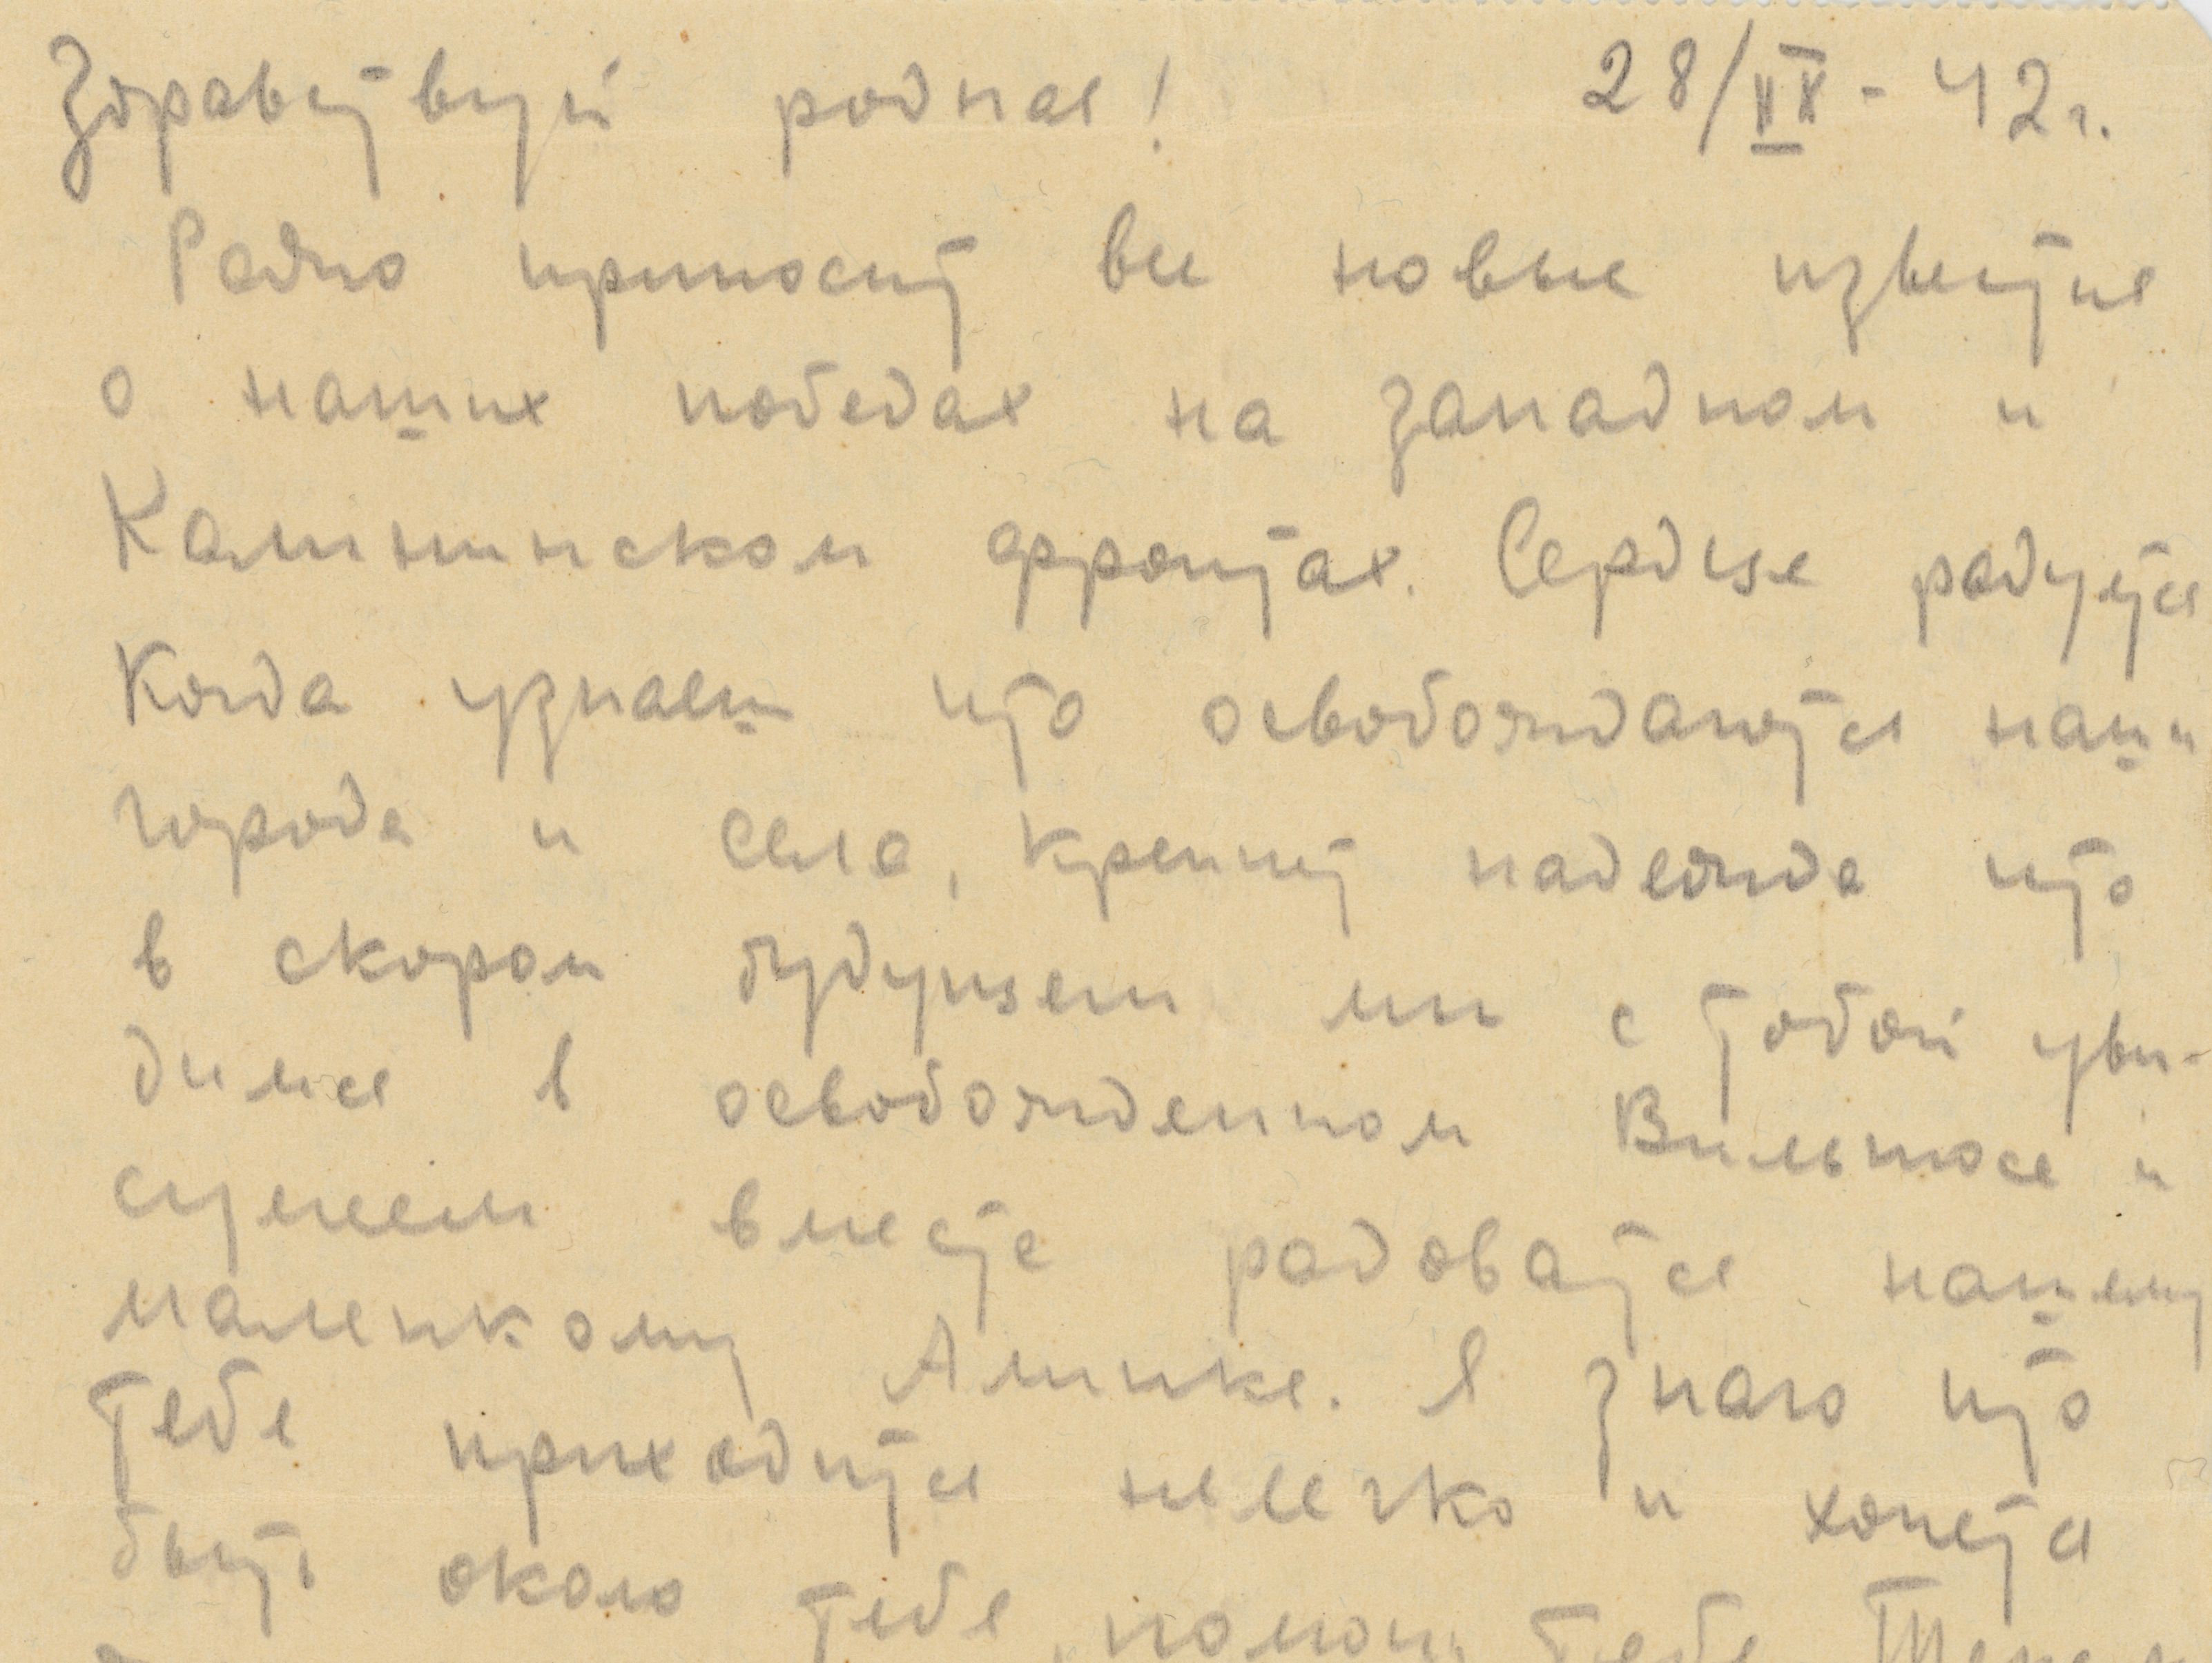 Здравствуй родная! 28/IIX - 42 г.
Радио приносит все новые известия
о наших победах на западном и
Калининском фронтах. Сердце радуется
Когда узнаеш что освобождаются наши
города и села, крепнет надежда что
в скором будущем ми с тобой уви-
димся в освобожденном Вильнюсе и
сумеем вместе радоватся нашему
маленкому Алинке. Я знаю что
тебе приходится нелегко и хочется
быть около тебя, помочь тебе.